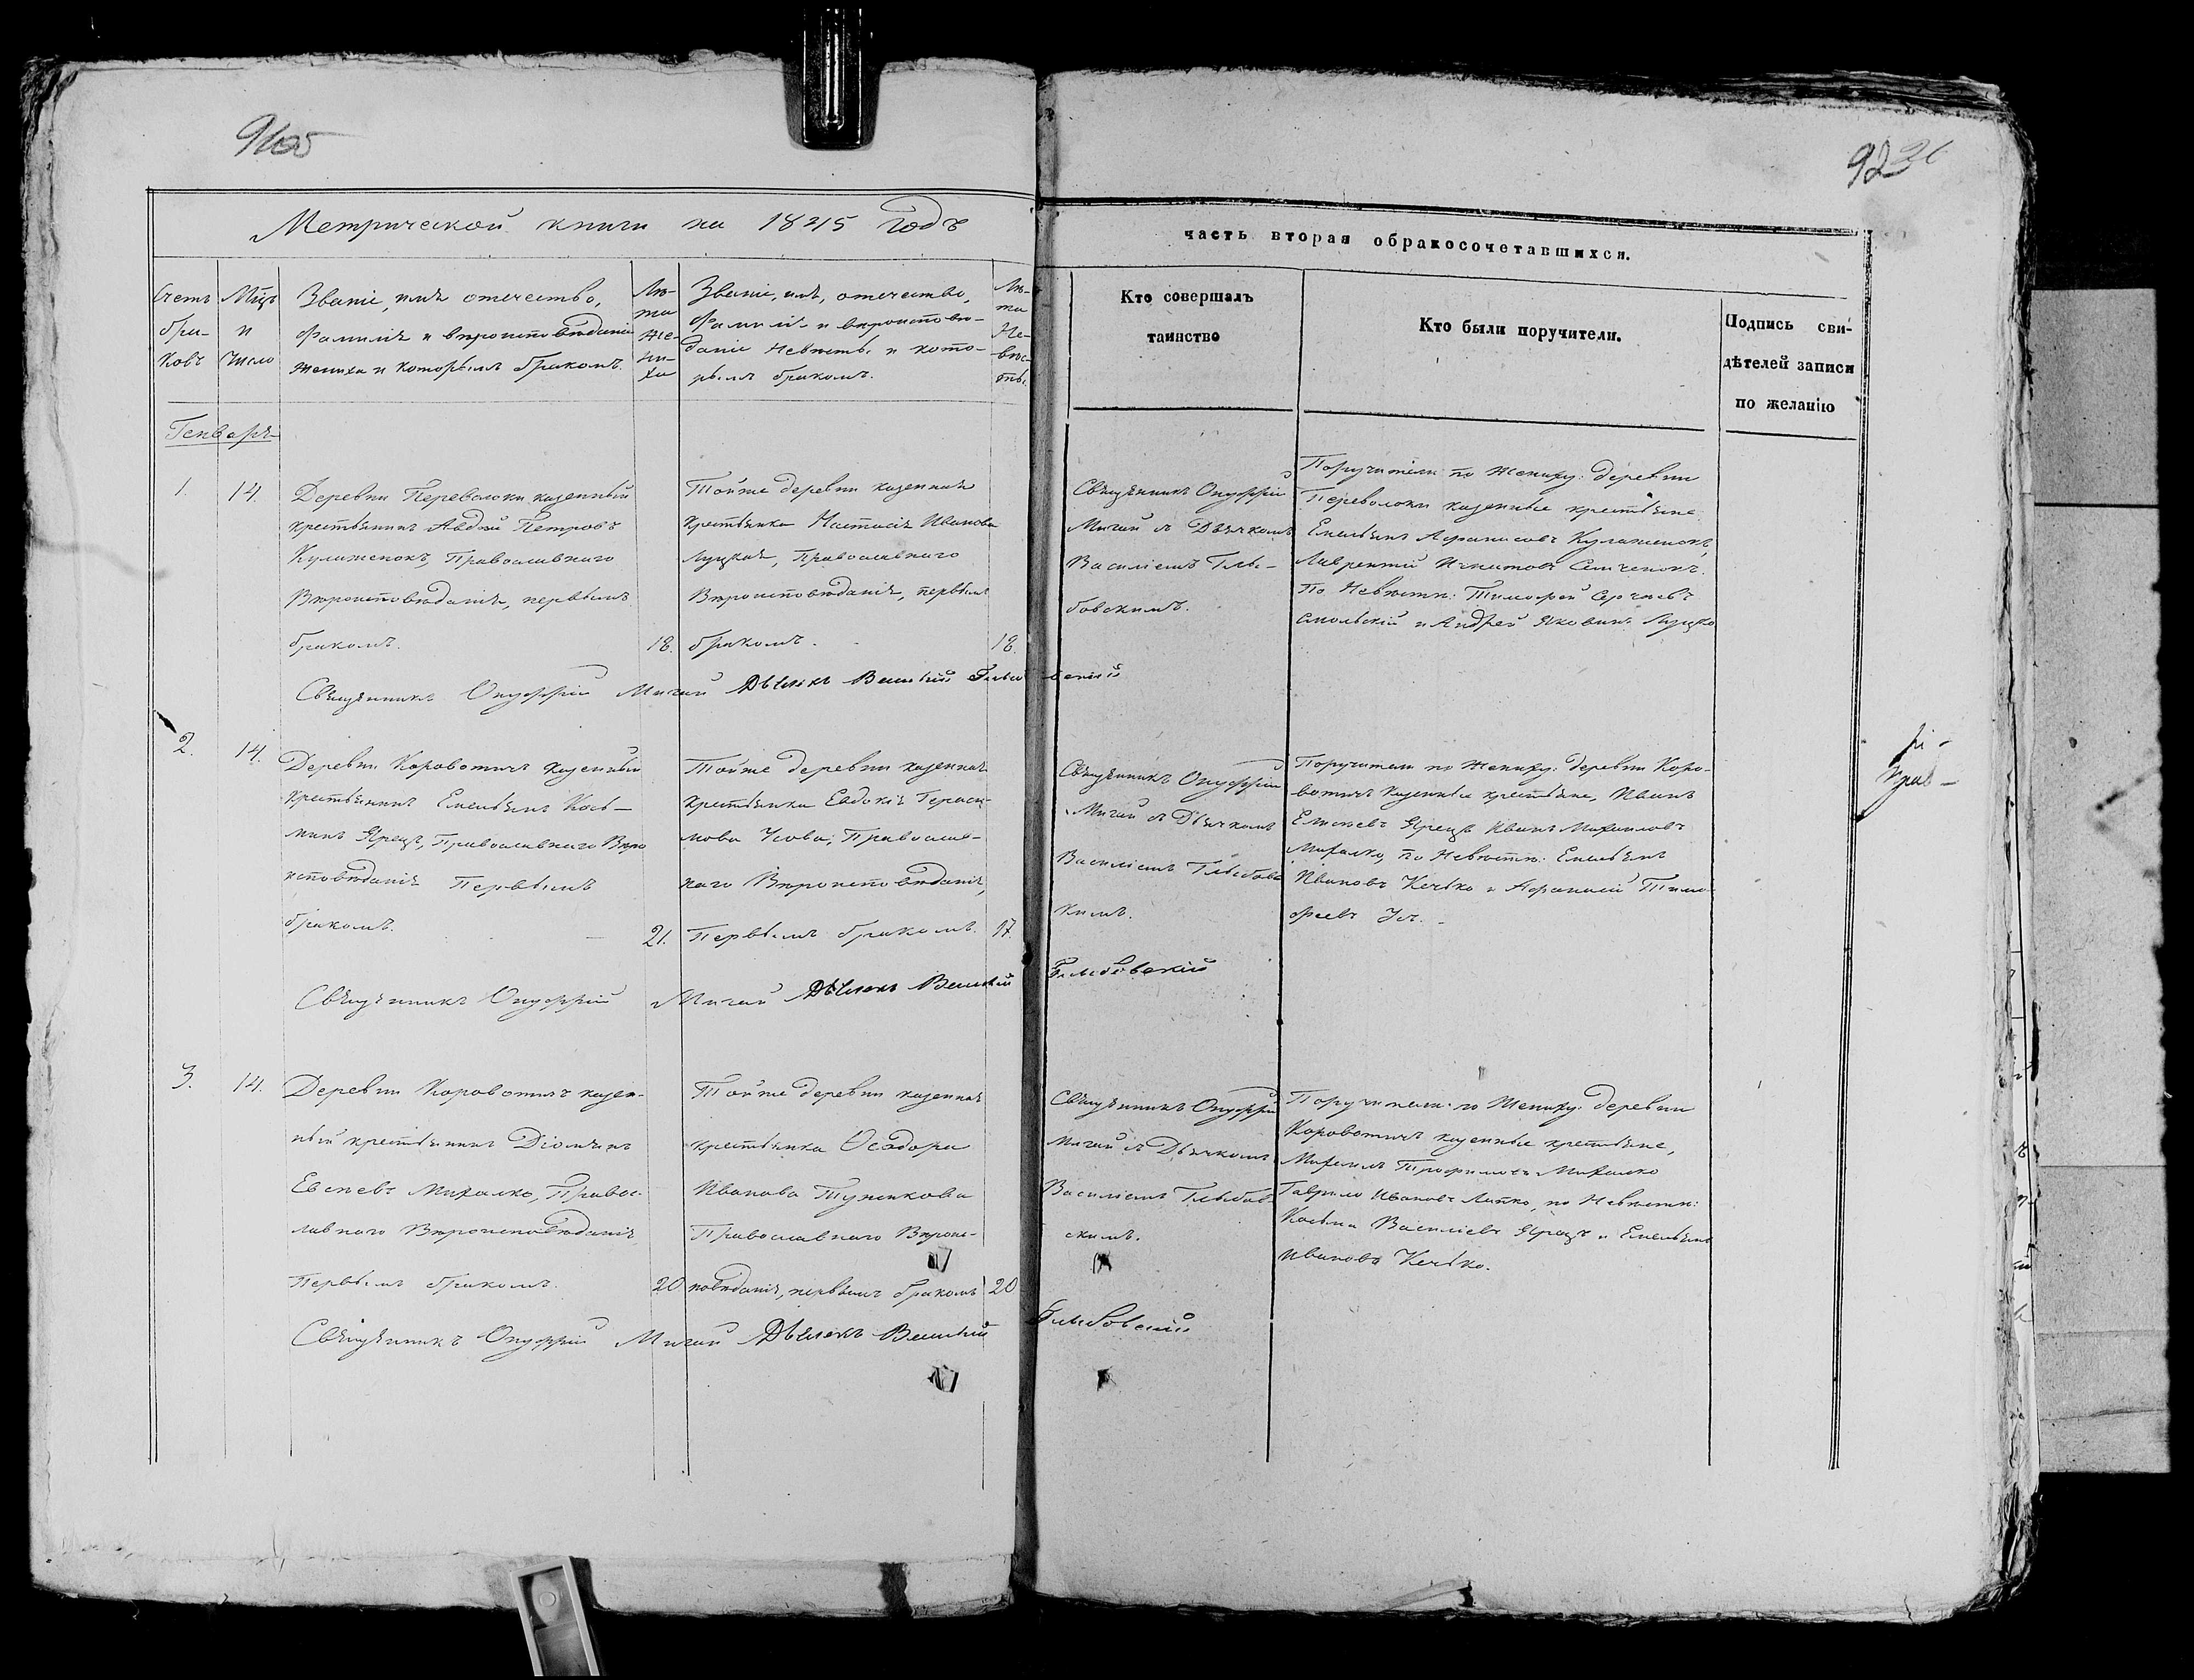 92
Метрической книги на 1845 годъ
часть вторая о бракосочетавшихся.
Счетъ
бра-
ковъ
Мцъ
и
Число
Званіе, имя отечество,
фамилія и вероисповѣданіе
жениха и которымъ бракомъ.
Лѣ-
та
же-
ни-
ха
Званіе, имя, отечество,
фамилія и вероисповѣ-
даніе Невѣсты и кото-
рымъ бракомъ.
Лѣ-
та
Не-
вѣс-
ты.
Кто совершалъ
таинство
Кто были поручители.
Подпись сви-
дѣтелей записи
по желанію
Генварь
1.
14
Деревни Переволоки казенный
крестьянинъ Авдѣй Петровъ
Кулаженокъ Православнаго
Вѣроисповѣданія, первымъ
бракомъ.
18.
Тойже деревни казенная
крестьянка Настасія Иванова
Луцкая, Православнаго
Вѣроисповѣданія, первымъ
бракомъ.
18.
Священникъ Онуфрій
Мигай съ Дьячкомъ
Василіемъ Глы-
бовскимъ.
Поручители по Жениху: деревни
Переволоки казенные крестьяне
Емельянъ Афанасовъ Кулаженокъ,
Лаврентій Игнатовъ
По Невѣсти: Тимофей Сергѣевъ
Смольскій и Андрей Яковинъ Луцко
Священникъ Онуфрій Мигай Дьячекъ Василій Глыбовскій
2.
14.
Деревни Коровотичъ казенный
крестьянинъ Емельянъ Кось-
минъ Ярецъ, Православнаго Вѣро
исповѣданія Первымъ
бракомъ.
21.
Тойже деревни казенная
крестьянка Евдокія Гераси-
мова Усова, Православ-
наго Вѣроисповѣданія,
Первымъ бракомъ.
17.
Священникъ Онуфрій
Мигай съ Дьячкомъ
Василіемъ Глыбовс
кимъ.
Поручители по Жениху: деревни Коро-
вотичъ казенные крестьяне, Иванъ
Елисеевъ Ярецъ Иванъ Михаиловъ
Михалко, по Невѣсти: Емельянъ
Ивановъ Кечько и Афанасій Тимо-
феевъ Ус.
Священникъ Онуфрій Мигай Дьячекъ Василій Глыбовскій
3.
14.
Деревни Коровотичъ казен-
ный крестьянинъ Діомидъ
Евсеевъ Михалко, Правос-
лавнаго Вѣроисповѣданія
Первымъ бракомъ.
20
Тойже деревни казенная
крестьянка Ѳеодора
Иванова Тупикова
Православнаго Вѣроис-
повѣданія, первымъ бракомъ
20
Священникъ Онуфрій
Мигай съ Дьячкомъ
Василіемъ Глыбов
скимъ.
Поручители по Жениху: деревни
Коровотичъ казенные крестьяне,
Михаилъ Трофимовъ Михалко
Гаврило Ивановъ Лапко, по Невѣсти:
Косьма Василіевъ Ярецъ и Емельянъ
Ивановъ Кечько.
Священникъ Онуфрій Мигай Дьячекъ Василій Глыбовскій